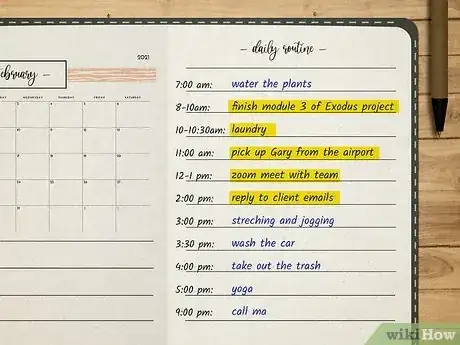 ebruary —
2021
WEDNESDAY THURSDAY FRIDAY SATURDAY
— daily routine —
7:00 am: water the plants
8-10am: finish module 3 of Exodus project
10-10:30am: laundry
11:00 am: pick up Gary from the airport
12-1 pm: zoom meet with team
2:00 pm: reply to client emails
3:00 pm: streching and jogging
3:30 pm: wash the car
4:00 pm: take out the trash
5:00 pm: yoga
9:00 pm: call ma
wikiHow